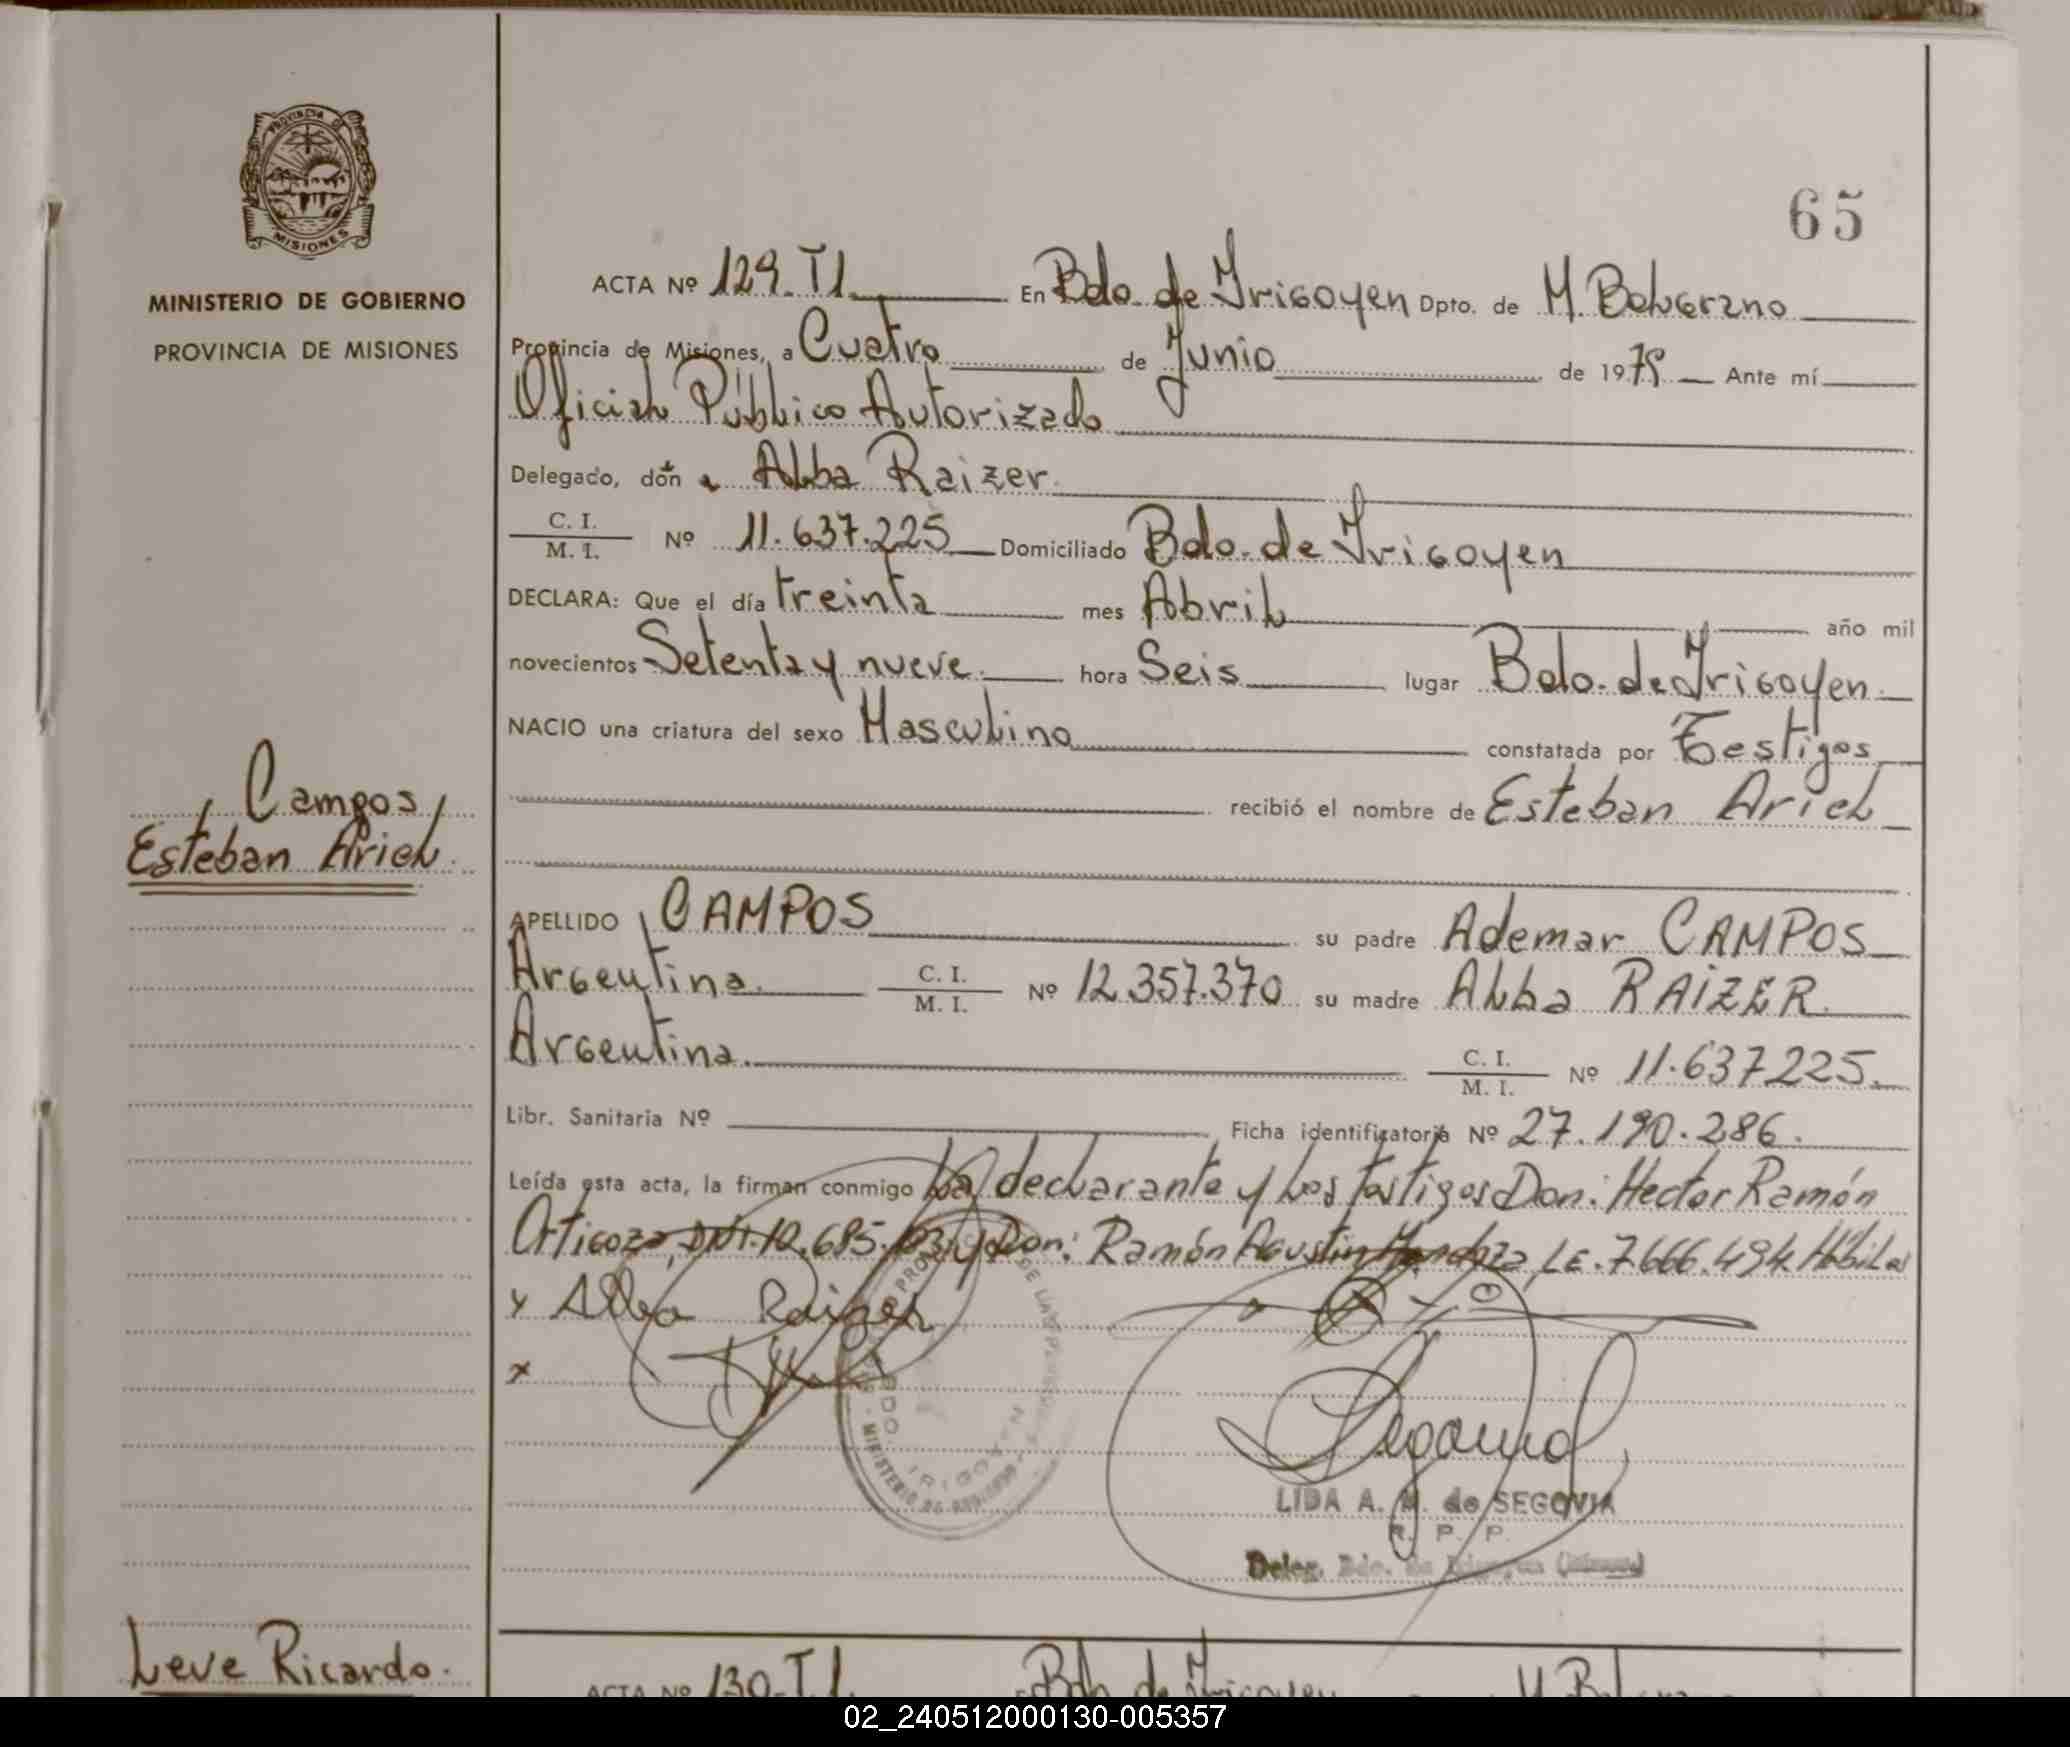 65
PROVINCIA DE
MISIONES
MINISTERIO DE GOBIERNO
PROVINCIA DE MISIONES
ACTA Nº 129. T1. En Bdo. de Irigoyen Dpto. de M. Belgrano
Provincia de Misiones, a Cuatro de Junio de 1979 Ante mí
Oficial Público Autorizado
Delegado, doña Alba Raizer.
C. I. / M. I. Nº 11.637.225 Domiciliado Bdo. de Irigoyen
DECLARA: Que el día treinta mes Abril año mil
novecientos Setenta y nueve. hora Seis lugar Bdo. de Irigoyen.
NACIO una criatura del sexo Masculino constatada por Testigos
Campos,
recibió el nombre de Esteban Ariel
Esteban Ariel.
APELLIDO CAMPOS su padre Ademar CAMPOS
Argentina. C. I. / M. I. Nº 12.357.370 su madre Alba RAIZER.
Argentina. C. I. / M. I. Nº 11.637.225.
Libr. Sanitaria Nº Ficha identificatoria Nº 27.190.286.
Leída esta acta, la firman conmigo La declarante y los testigos Don: Hector Ramón
Ortigoza, DNI. 10.685. y Don: Ramón Agustin Mendoza, LE. 7.666.494. Hábiles
x Alba Raizer
x
Segovia
LIDA A. M. de SEGOVIA
R. P. P.
Deleg. Bdo. de Irigoyen (Misiones)
BDO. IRIGOYEN
MINISTERIO DE GOBIERNO
Leve Ricardo.
ACTA Nº 130-T1. En Bdo de Irigoyen M. Belgrano
02_240512000130-005357